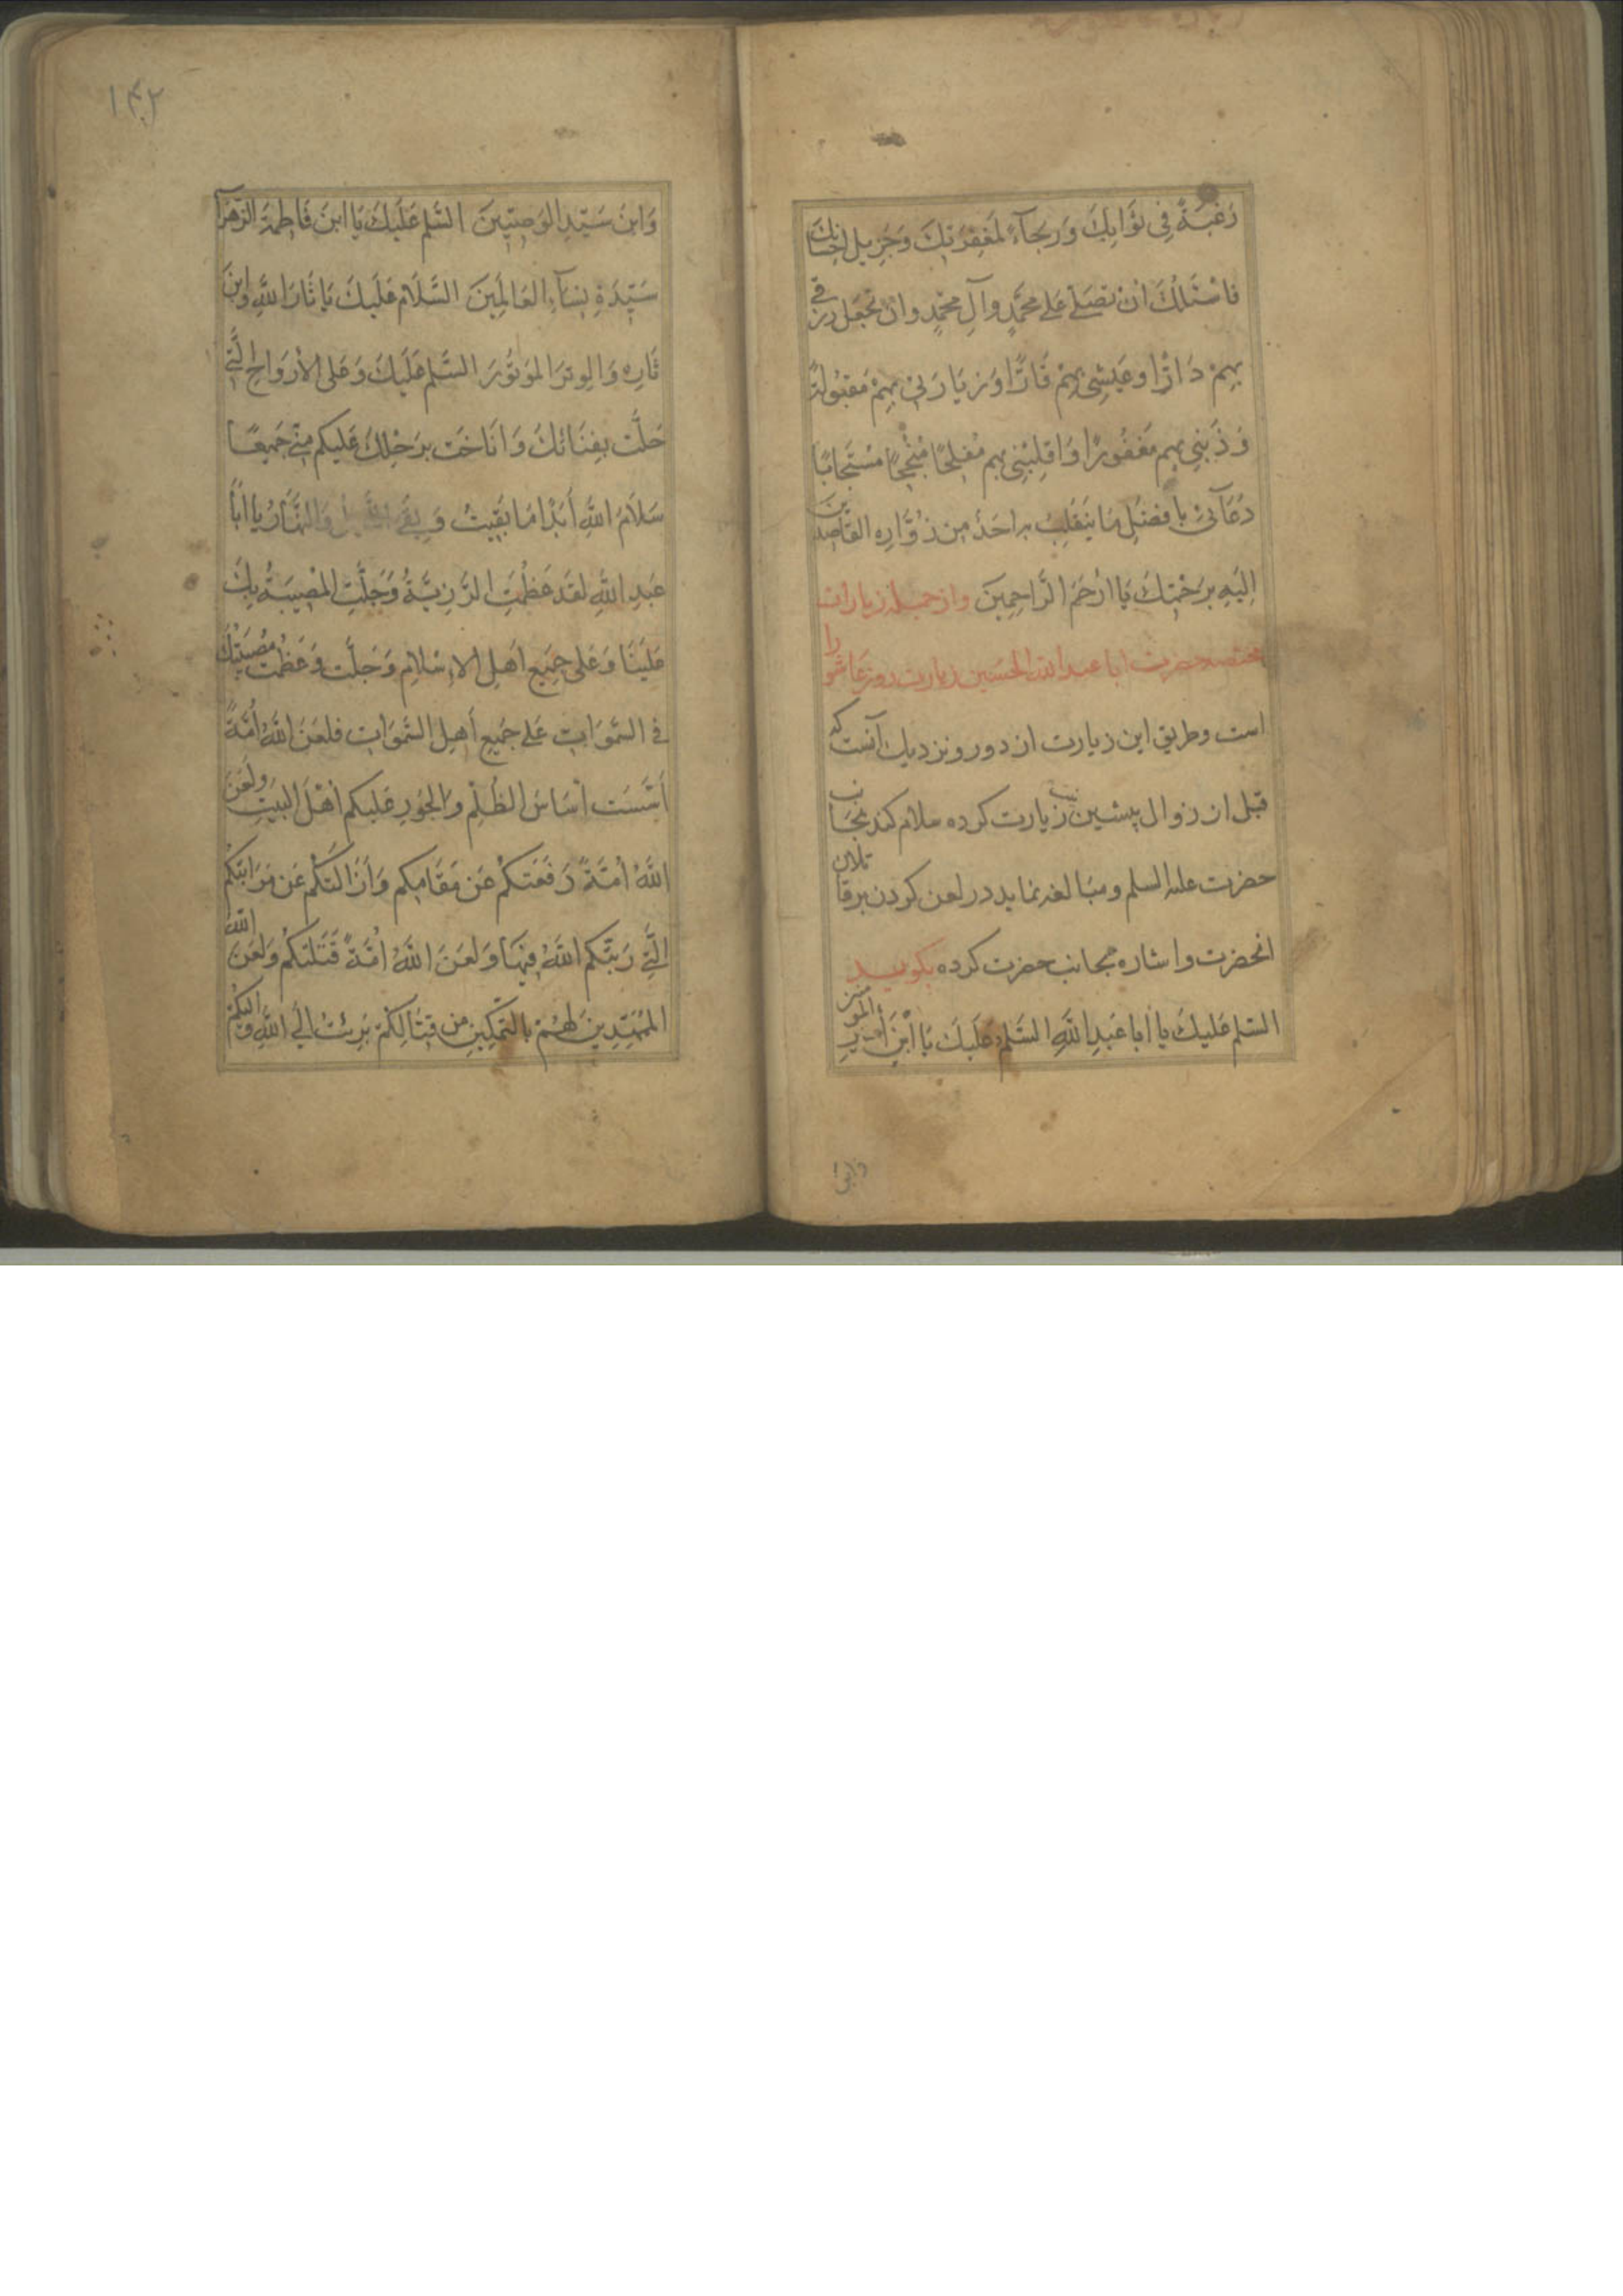 رَغْبَةً فِى ثَوَابِكَ وَرَجَآءً لِمَغْفِرَتِكَ وَجَزِيلِ اِحْسَانِكَ
فَاَسْئَلُكَ اَنْ تُصَلِّىَ عَلٰى مُحَمَّدٍ وَآلِ مُحَمَّدٍ وَاَنْ تَجْعَلَ رِزْقِى
بِهِمْ دَارًّا وَعَيْشِى بِهِمْ قَارًّا وَزِيَارَتِى بِهِمْ مَقْبُولَةً
وَذَنْبِى بِهِمْ مَغْفُورًا وَاقْلِبْنِى بِهِمْ مُفْلِحًا مُنْجِحًا مُسْتَجَابًا
دُعَآئِى بِاَفْضَلِ مَا يَنْقَلِبُ بِهِ اَحَدٌ مِنْ زُوَّارِهِ القَاصِدِينَ
اِلَيْهِ بِرَحْمَتِكَ يَا اَرْحَمَ الرَّاحِمِينَ وازجمله زيارات
مختصه حضرت ابا عبد الله الحسين زيارت روز عاشورا
است وطريق اين زيارت از دور ونزديك آنست كه
قبل از زوال پيشين نيت زيارت كرده سلام كند بجانب
حضرت عليه السلم ومبالغه نمايد در لعن كردن بر قاتلان
انحضرت واشاره بجانب حضرت كرده بكويد
السَّلم عَلَيكَ يَا اَبَا عَبدِ اللَّهِ السَّلمُ عَلَيكَ يَا ابْنَ أَميرِ المومنين
وابى
١٤٢
وَابنَ سَيِّدِ الوَصِيِّينَ السَّلم عَلَيكَ يَا ابنَ فَاطِمَةَ الزَّهرآ
سَيِّدَةِ نِسَآءِ العَالَمِينَ السَّلَام عَلَيكَ يَا ثَارَ اللَّهِ وَابنَ
ثَارِه وَالوِترَ المَوتُورَ السَّلم عَلَيكَ وَعَلَى الأَروَاحِ الَّتِى
حَلَّت بِفِنَائِكَ وَانَاخَت بِرَحلِكَ عَلَيكم مِنِّى جَمِيعًا
سَلَامُ اللَّهِ أَبَدًا مَا بَقِيتُ وَبَقِىَ اللَّيلُ وَالنَّهَارُ يَا اَبَا
عَبدِ اللَّهِ لَقَد عَظُمَتِ الرَّزِيَّةُ وَجَلَّتِ المُصِيبَةُ بِكَ
عَلَينَا وَعَلى جَمِيعِ اَهلِ الاِسْلامِ وَجَلَّت وَعَظُمَت مُصِيبَتُكَ
فى السَّموَاتِ عَلى جَمِيعِ أَهلِ السَّموَاتِ فَلَعَنَ اللَّهُ اُمَّةً
أَسَّسَت أَسَاسَ الظُّلمِ وَالجَورِ عَلَيكُم أَهْلَ البَيتِ وَلَعَنَ
اللَّهُ اُمَّةً دَفَعَتكُم عَن مَقَامِكم وَأَزَالَتكُم عَن مَرَاتِبِكُم
الَّتِى رَتَّبَكُم اللَّهُ فِيهَا وَلَعَنَ اللَّهُ اُمَّةً قَتَلَتكُم وَلَعَنَ اللَّهُ
المُمَهِّدِينَ لَهُمْ بِالتَّمكِينِ مِن قِتَالِكُمْ بَرِئْتُ اِلَى اللَّهِ وَاِلَيْكُمْ